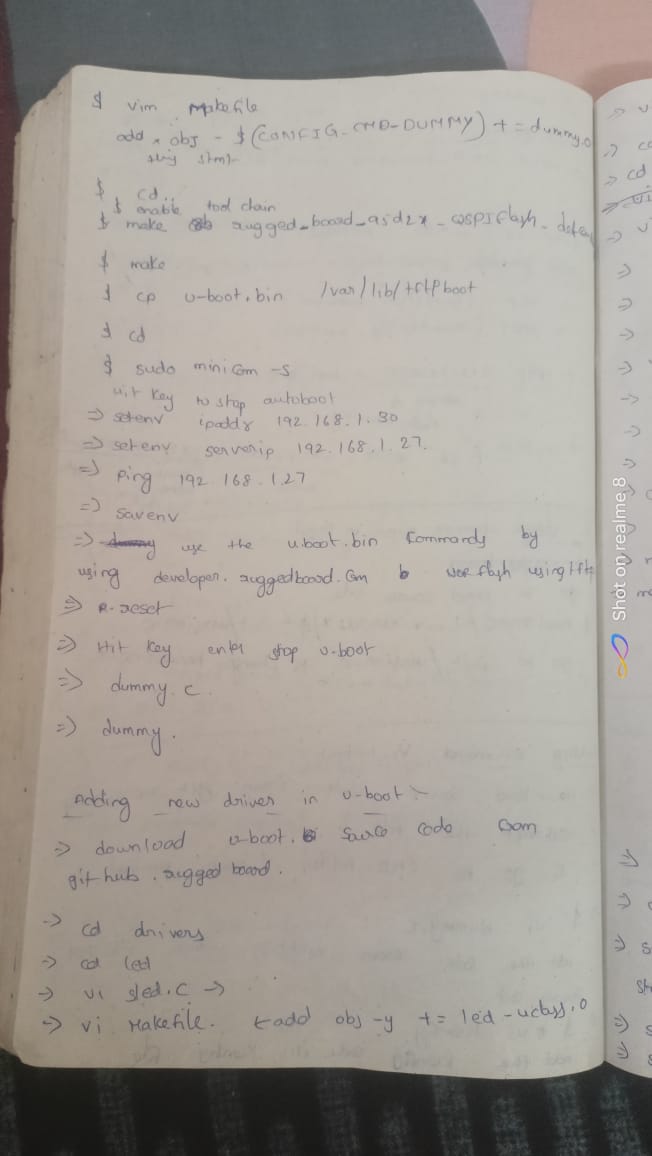 $ vim Makefile
add obj - $(CONFIG-CMD-DUMMY) += dummy.o
$ cd..
$ enable tool chain
$ make rugged_board_a5d2x_qspiflash_
$ make
$ cp u-boot.bin /var/lib/tftpboot
$ cd
$ sudo minicom -s
Hit key to stop autoboot
=> setenv ipaddr 192.168.1.30
=> setenv serverip 192.168.1.27.
=> Ping 192.168.1.27
=> savenv
=> use the u.boot.bin commands by
using developer.ruggedboard.com flash using tftp
=> R-reset
=> Hit key enter stop u-boot
=> dummy.c.
=> dummy.
Adding new driver in u-boot:-
=> download u-boot. code from
github.rugged board.
=> cd drivers
=> cd led
=> vi sled.c →
=> vi Makefile. add obj-y += led-uclass.o
Shot on realme 8